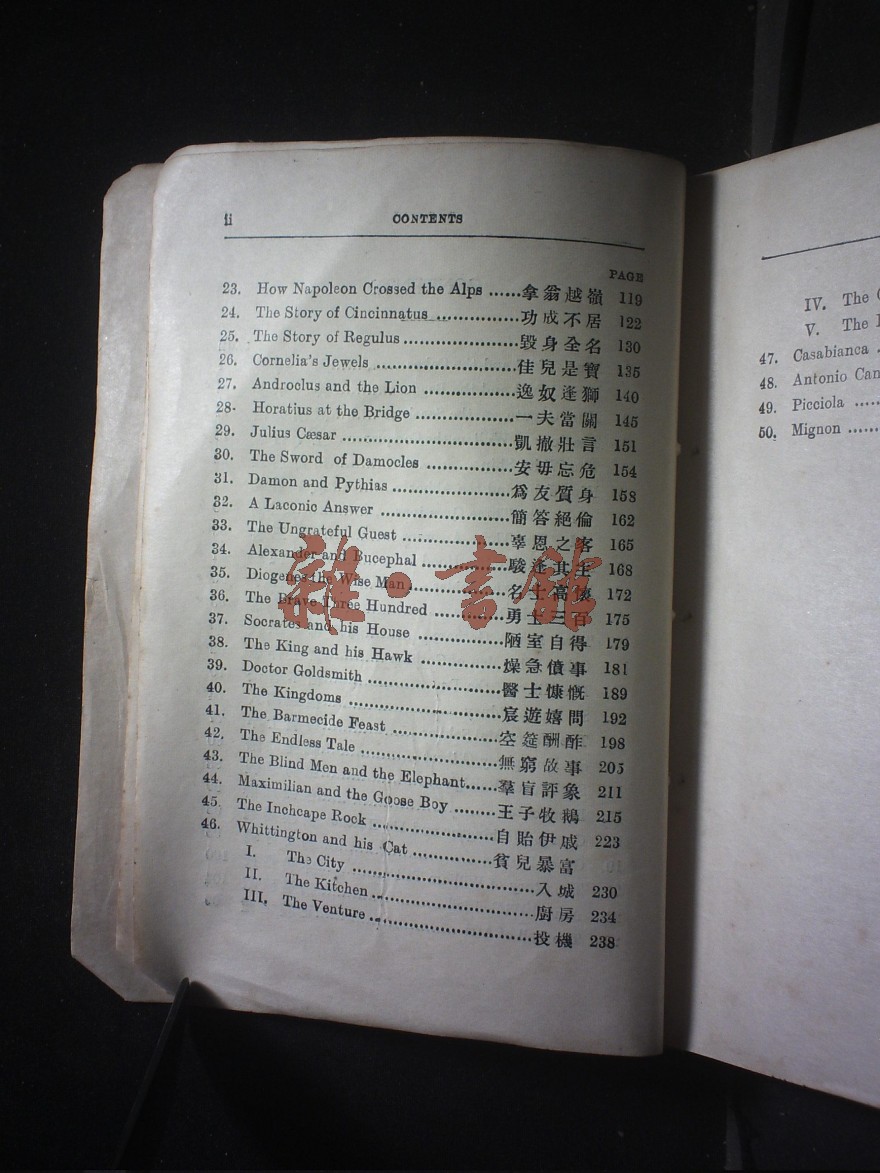 ii CONTENTS
PAGE
23. How Napoleon Crossed the Alps ......拿翁越嶺 119
24. The Story of Cincinnatus ...............功成不居 122
25. The Story of Regulus ....................毀身全名 130
26. Cornelia's Jewels ..........................佳兒是寶 135
27. Androclus and the Lion ..................逸奴逢獅 140
28. Horatius at the Bridge ....................一夫當關 145
29. Julius Cæsar ................................凱撤壯言 151
30. The Sword of Damocles ................安毋忘危 154
31. Damon and Pythias ......................爲友質身 158
32. A Laconic Answer .........................簡答絕倫 162
33. The Ungrateful Guest ....................辜恩之客 165
34. Alexander and Bucephal ................駿逢其主 168
35. Diogenes the Wise Man ................名士高懷 172
36. The Brave Three Hundred .............勇士三百 175
37. Socrates and his House ................陋室自得 179
38. The King and his Hawk .................燥急僨事 181
39. Doctor Goldsmith .........................醫士慷慨 189
40. The Kingdoms .............................宸遊嬉問 192
41. The Barmecide Feast ...................空筵酬酢 198
42. The Endless Tale .........................無窮故事 205
43. The Blind Men and the Elephant......羣盲評象 211
44. Maximilian and the Goose Boy .......王子牧鵝 215
45. The Inchcape Rock ......................自貽伊戚 223
46. Whittington and his Cat .................貧兒暴富
I. The City ..................................入城 230
II. The Kitchen .............................廚房 234
III. The Venture ............................投機 238
雜·書館
IV. The
V. The
47. Casabianca
48. Antonio
49. Picciola ....
50. Mignon ......